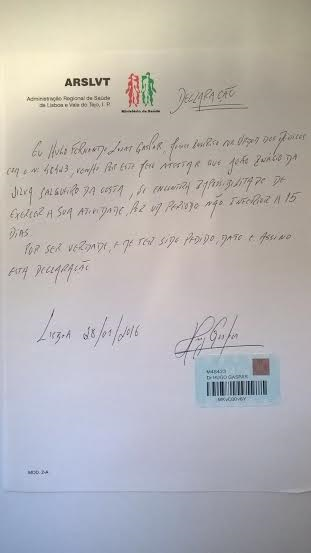 ARSLVT
Administração Regional de Saúde
de Lisboa e Vale do Tejo, I. P.
Ministério da Saúde
DECLARAÇÃO
EU HUGO FERNANDO GASPAR, INSCRITO NA ORDEM DOS MÉDICOS
COM O Nº 48423, VENHO POR ESTE MEIO ATESTAR QUE JOÃO DA
SILVA SALGUEIRO DA COSTA, SE ENCONTRA IMPOSSIBILITADO DE
EXERCER A SUA ATIVIDADE, POR UM PERÍODO NÃO INFERIOR A 15
DIAS.
POR SER VERDADE, E ME TER SIDO PEDIDO, DATO E ASSINO
ESTA DECLARAÇÃO
LISBOA 28/01/2016
M48423
Dr HUGO GASPAR
MOD. 2-A